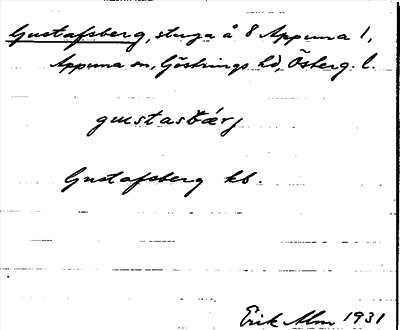 Gustafsberg, stuga å 8 Appuna 1,
Appuna sn, Göstrings hd, Österg. l.
gustasbærj
Gustafsberg kb.
Erik Alm 1931